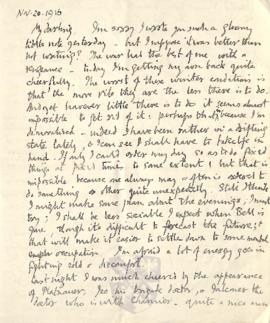 Nov-20-1916
My darling I'm sorry I wrote you such a gloomy
little note yesterday - but I suppose it was better than
not writing? The war has the best of me with a
vengeance - today I'm getting my own back quite
cheerfully. The worst of these winter conditions is
that the more jobs they are the less there is to do.
And yet however little there is to do it seems almost
impossible to get rid of it: perhaps that's because I'm
demoralised - indeed I have been rather in a drifting
state lately, & I can see I shall have to take self in
hand. If only I could order my day so as to do fixed
things at fixed times to some extent! but that is
impossible because one always may & often is asked to
do something or other quite unexpectedly. Still I think
I might make some plan about the evenings; I must
try; I shall be less sociable I expect when Bell is
gone, though it's difficult to forecast the future; &
that will make it easier to settle down to some
occupation. I'm afraid a lot of energy goes in
fighting cold & discomfort.
Last night I was much cheered by the appearance
of his brigade doctor, & Palamer the
doctor who is with - quite a nice man